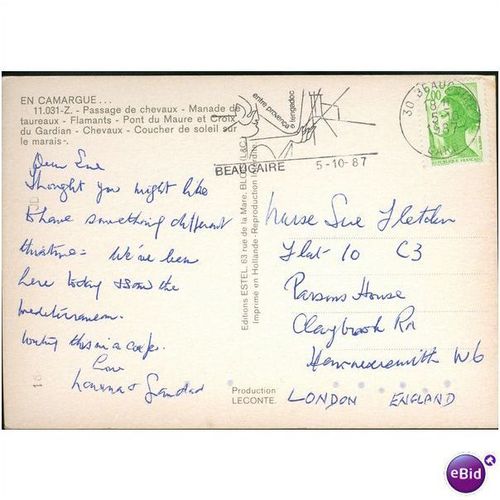 EN CAMARGUE...
11.031-Z. - Passage de chevaux - Manade de
taureaux - Flamants - Pont du Maure et Croix
du Gardian - Chevaux - Coucher de soleil sur
le marais -.
Dear Sue
Thought you might like
to have something different
this time. We've been
here today & saw the
mediterranean.
writing this in a cafe.
Love
entre provence
BEAUCAIRE 5-10-87
30 BEAUC
Editions ESTEL, 63 rue de la Mare, BLOIS (L&C)
Imprimé en Hollande - Reproduction Interdite
Production
LECONTE.
Nurse Sue Fletcher
Flat 10 C3
Parsons House
Claybrook Rd
Hammersmith W6
LONDON ENGLAND
eBid